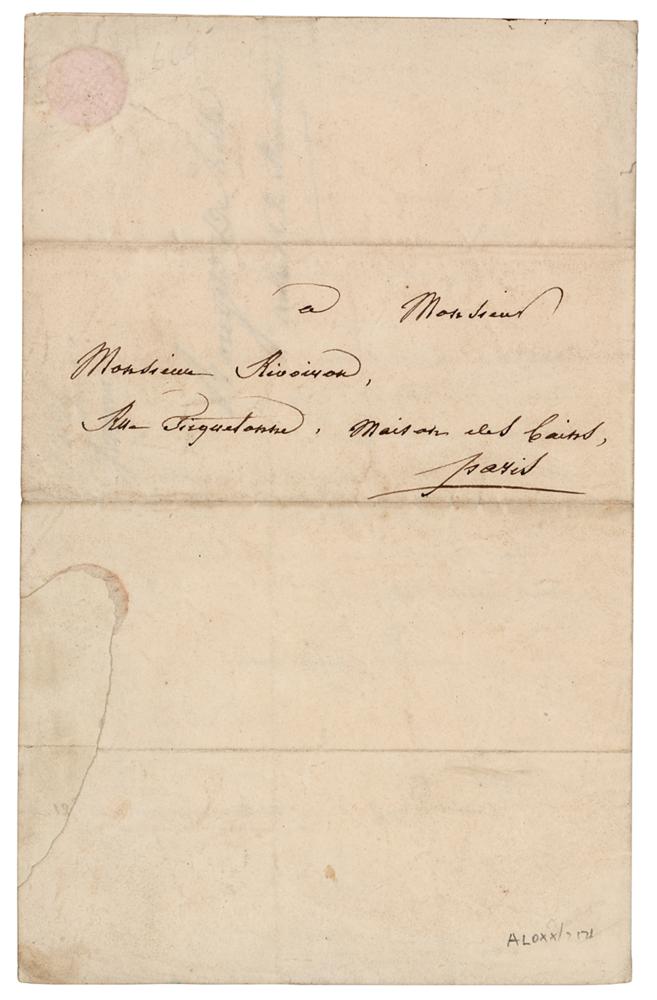 a Monsieur
Monsieur Rivoiron,
Rue Ticquetonne, Maison des bains,
paris